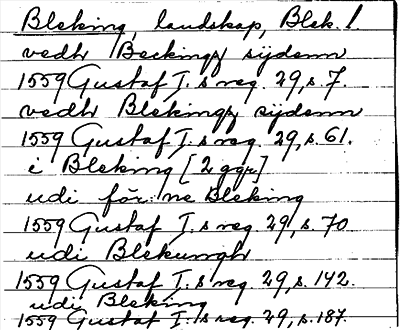 Bleking, landskap, Blek. l.
vedh Beckingx sijdenn
1559 Gustaf I.s reg. 29, s. 7.
vedh Blekingx sijdenn
1559 Gustaf I.s reg. 29, s. 61.
i Bleking [2 ggr]
udi för:ne Bleking
1559 Gustaf I.s reg. 29, s. 70
udi Blekungh
1559 Gustaf I.s reg. 29, s. 142.
udi Bleking
1559 Gustaf I.s reg. 29, s. 187.